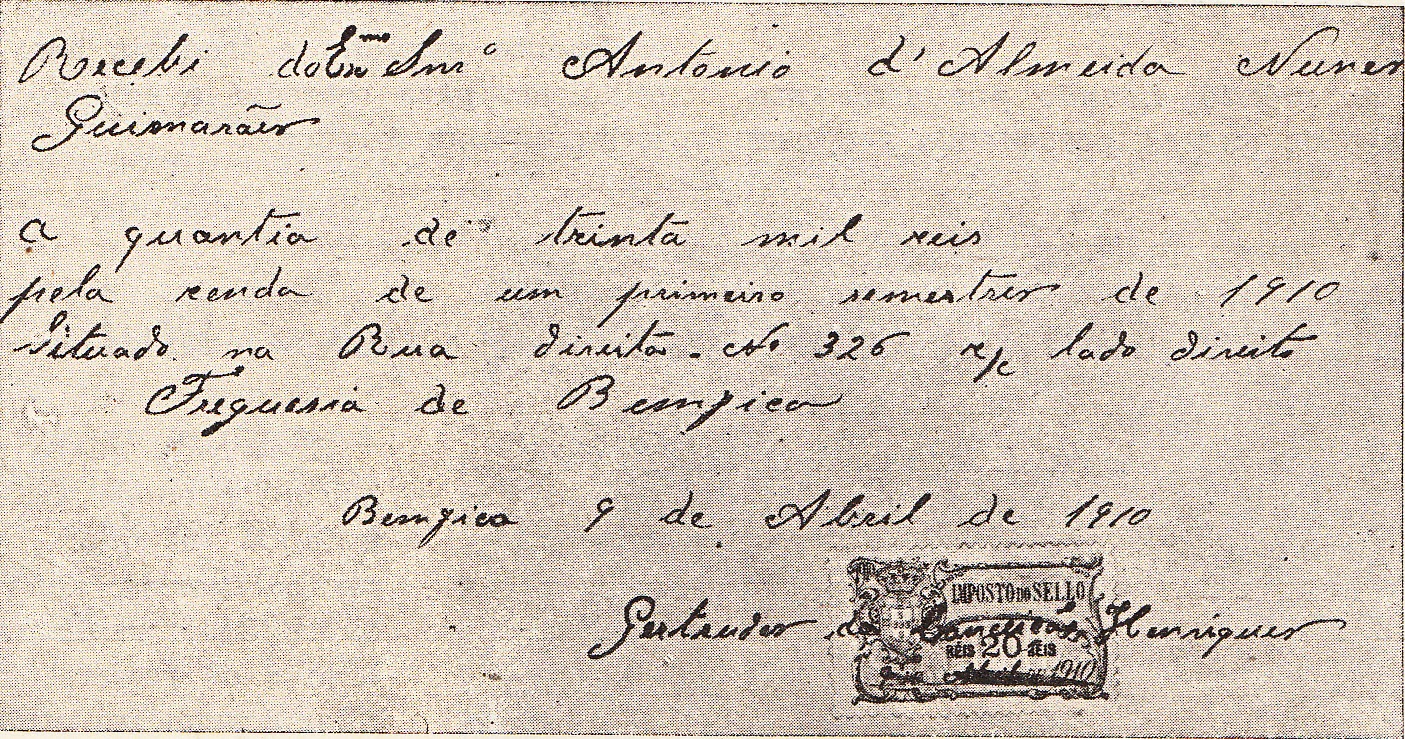 Recebi do Exmo Snro Antonio d'Almeida Nunes
Guimarães
a quantia de trinta mil reis
pela renda de um primeiro semestre de 1910
Situado na Rua direita No 326 r/c lado direito
Freguesia de Bemfica
Bemfica 9 de Abril de 1910
IMPOSTO DO SELLO
Gertrudes da Conceição Henriques
RÉIS 20 RÉIS
Abril de 1910